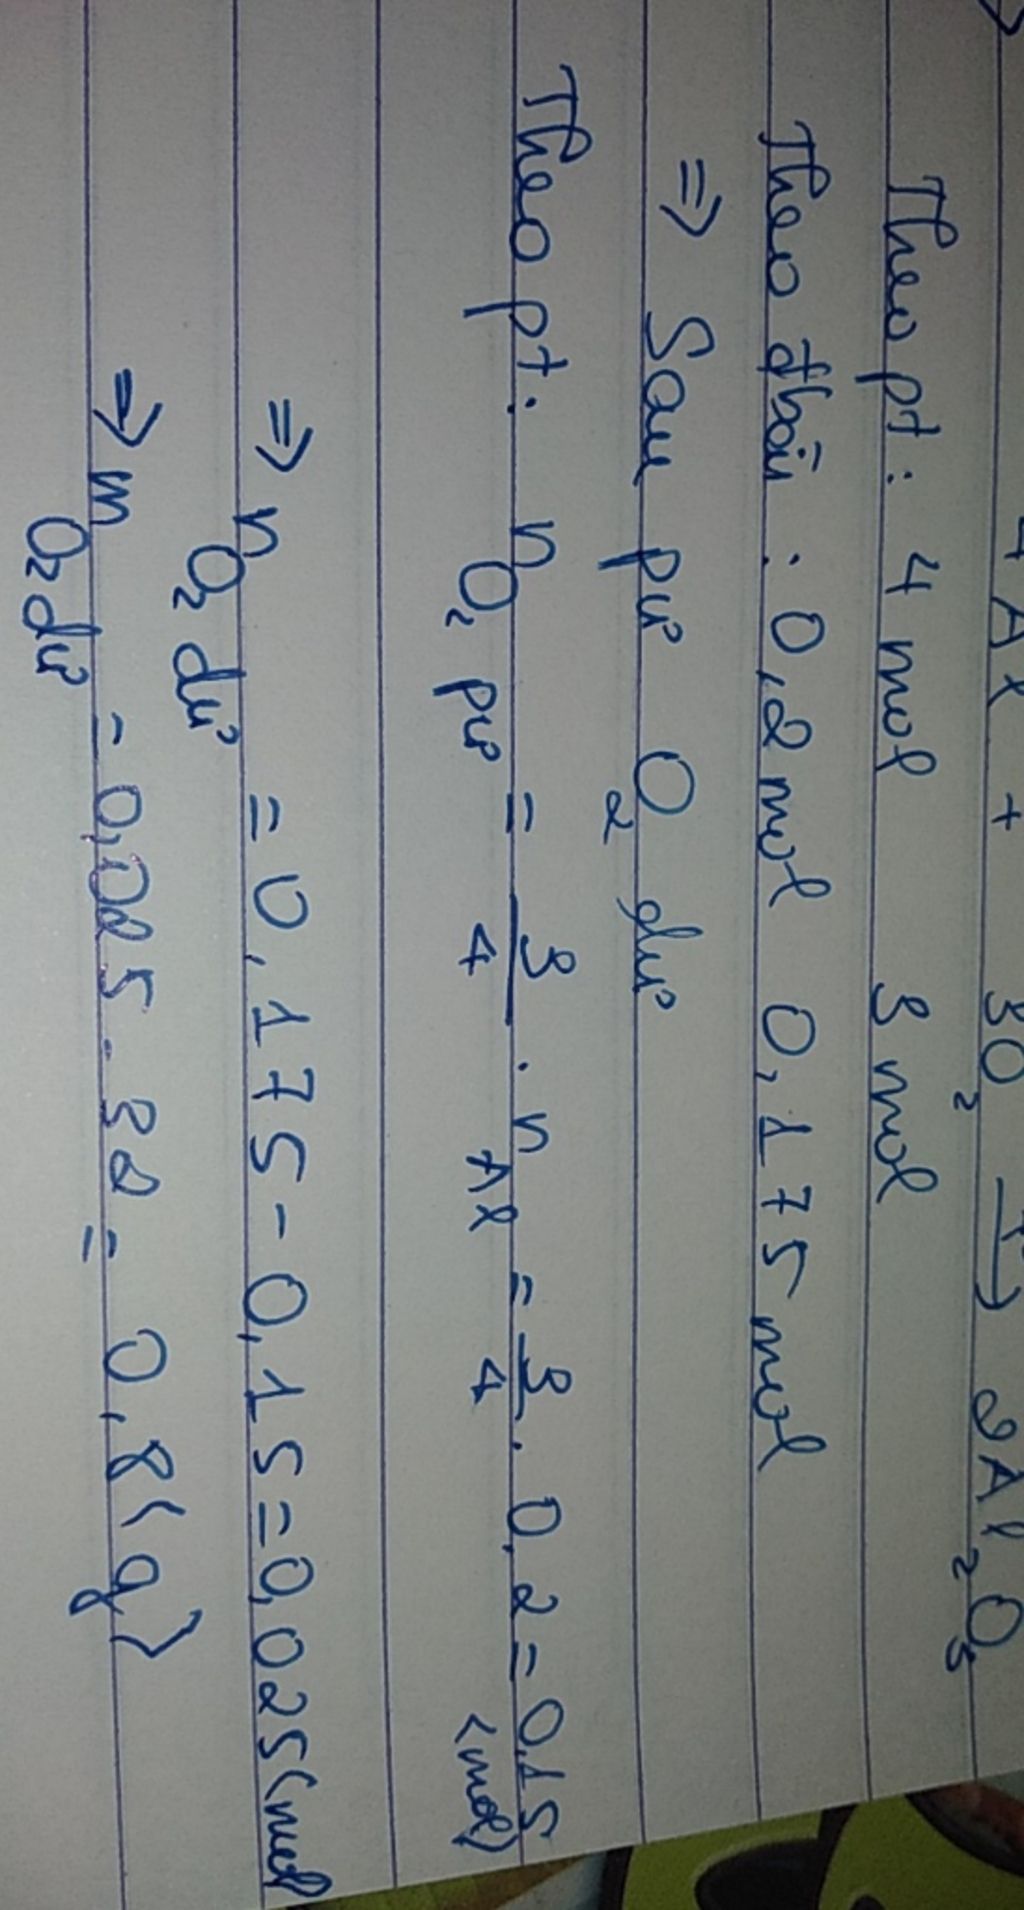 4Al + 3O₂ → 2Al₂O₃
Theo pt: 4 mol 3 mol
Theo đbài: 0,2 mol 0,175 mol
=> Sau pư O₂ dư
Theo pt: n O₂ pư = 3/4 . n Al = 3/4 . 0,2 = 0,15 (mol)
=> n O₂ dư = 0,175 - 0,15 = 0,025 (mol
=> m O₂ dư = 0,025 . 32 = 0,8 (g)